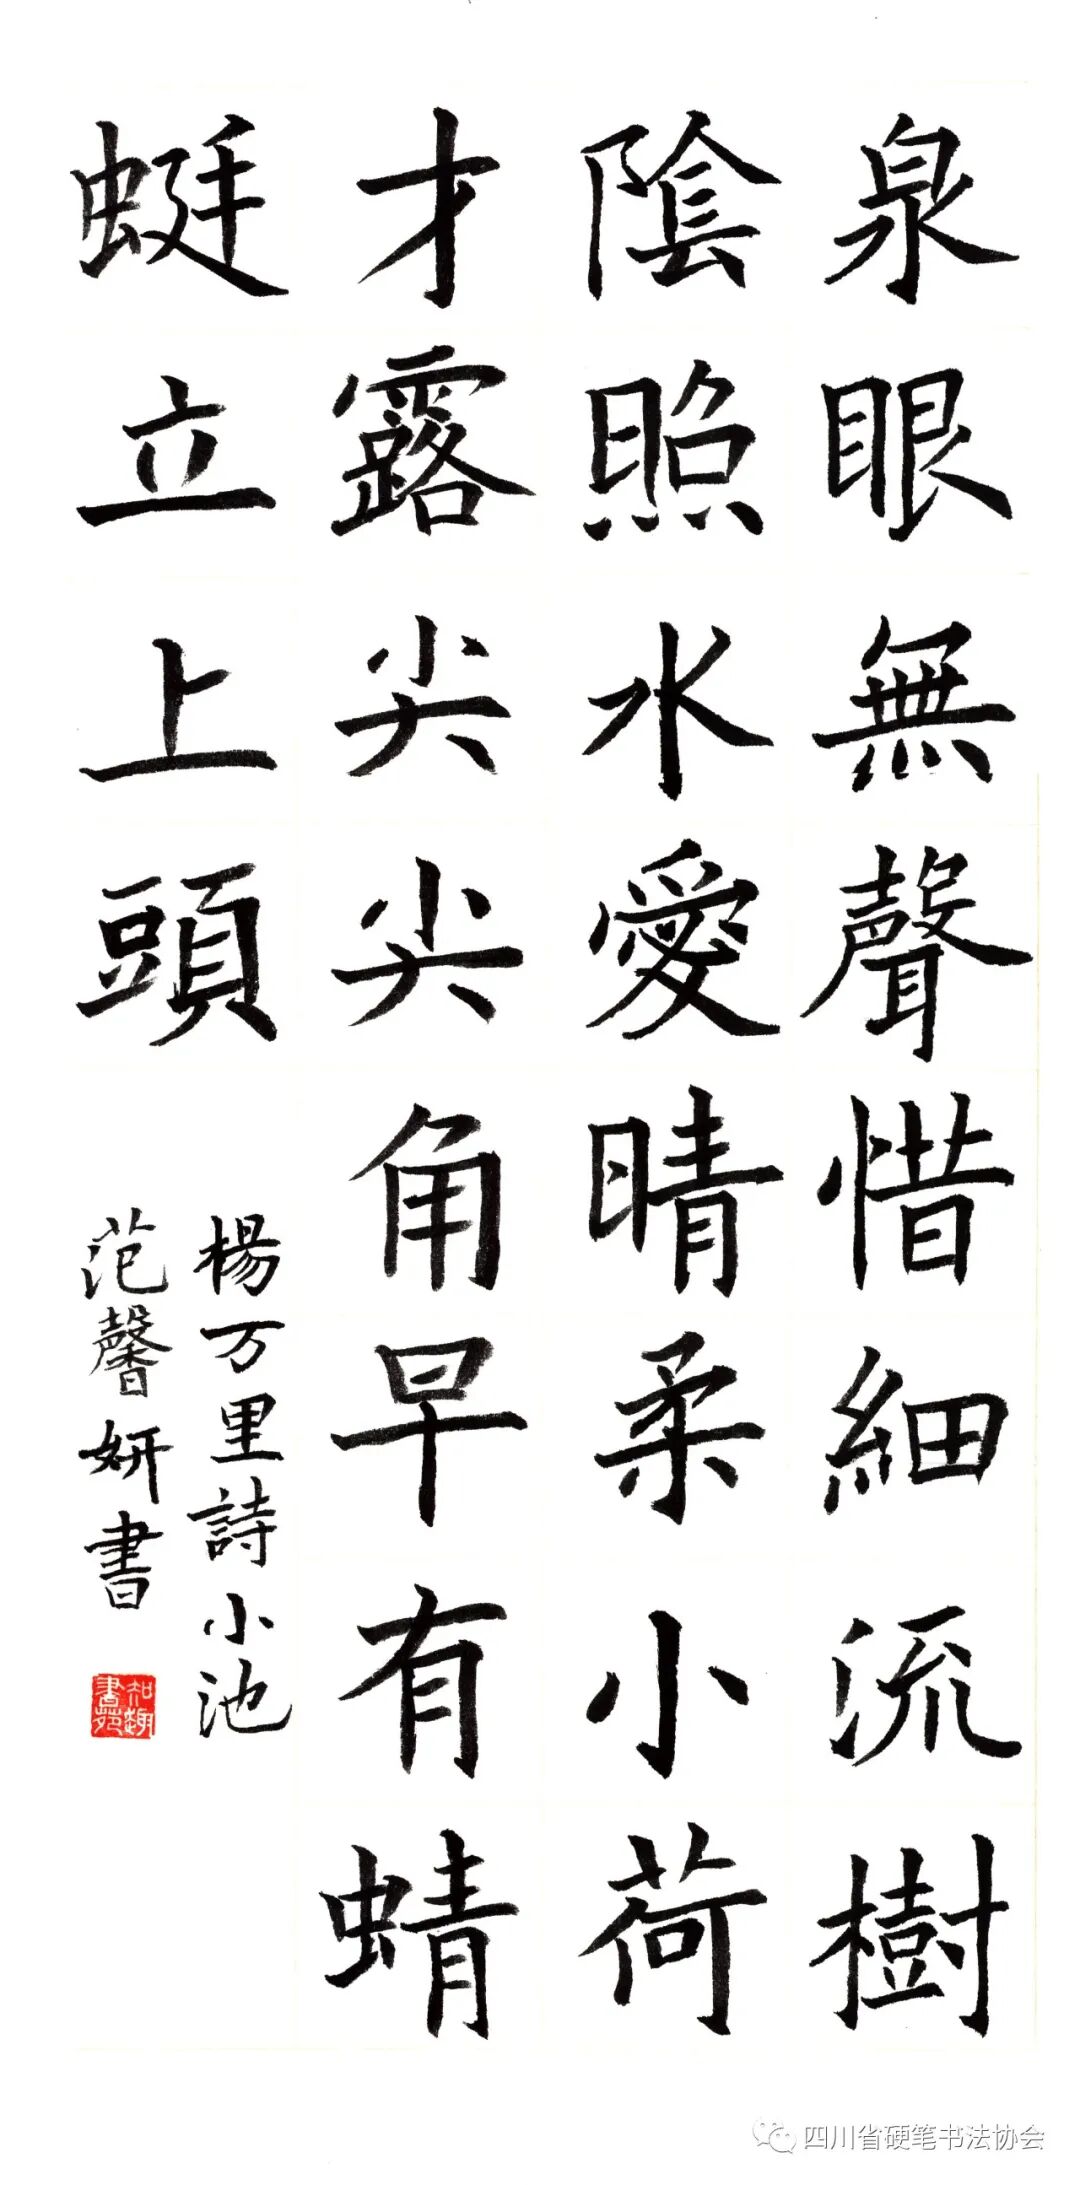 泉眼無聲惜細流樹
陰照水愛晴柔小荷
才露尖尖角早有蜻
蜓立上頭
楊万里詩小池
范馨妍書
知趣書苑
四川省硬笔书法协会